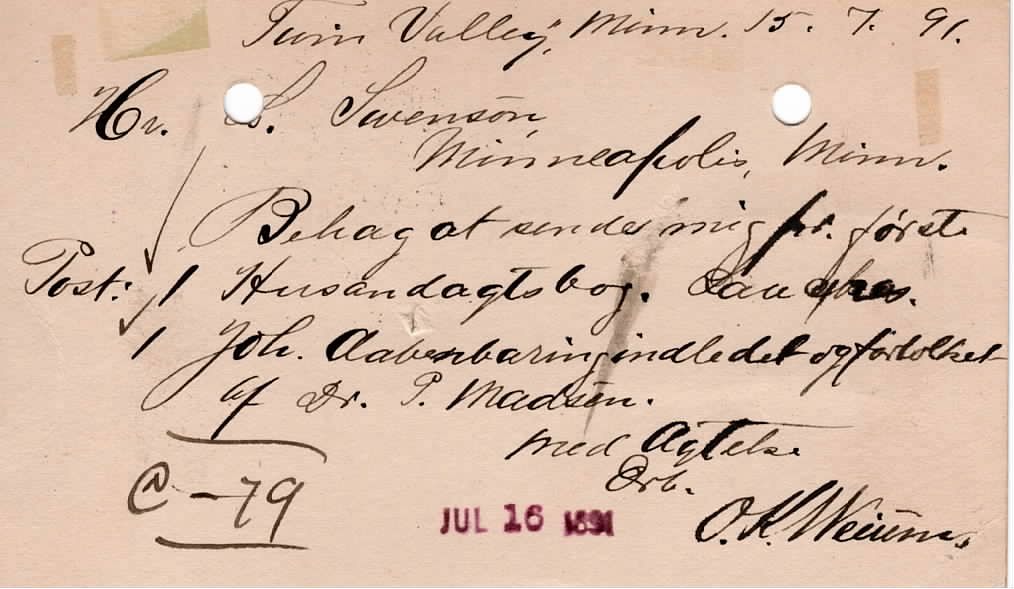 Twin Valley, Minn. 15. 7. 91.
Hr. S. Swenson,
Minneapolis, Minn.
Behag at sende mig pr. første
Post: 1 Husandagtsbog.
1 Joh. Aabenbaring indledet og fortolket
af Dr. P. Madsen.
med Agtelse
Drb.
O. K.
C - 79
JUL 16 1891